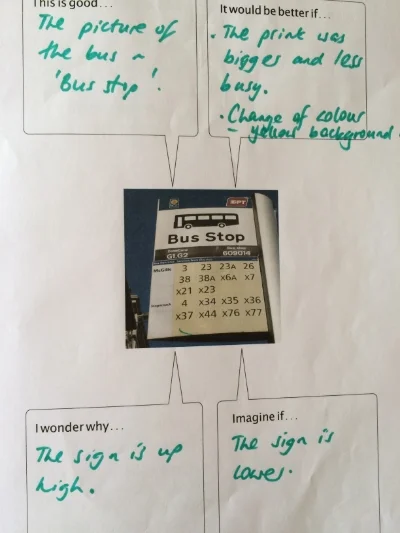 This is good...
The picture of
the bus ~
'Bus stop'.
It would be better if...
• The print was
bigger and less
busy.
• Change of colour
– yellow background.
SPT
Bus Stop
G1 G2
609014
McGill's
3 23 23A 26
38 38A X6A X7
X21 X23
4 X34 X35 X36
X37 X44 X76 X77
I wonder why...
The sign is up
high.
Imagine if...
The sign is
lower.